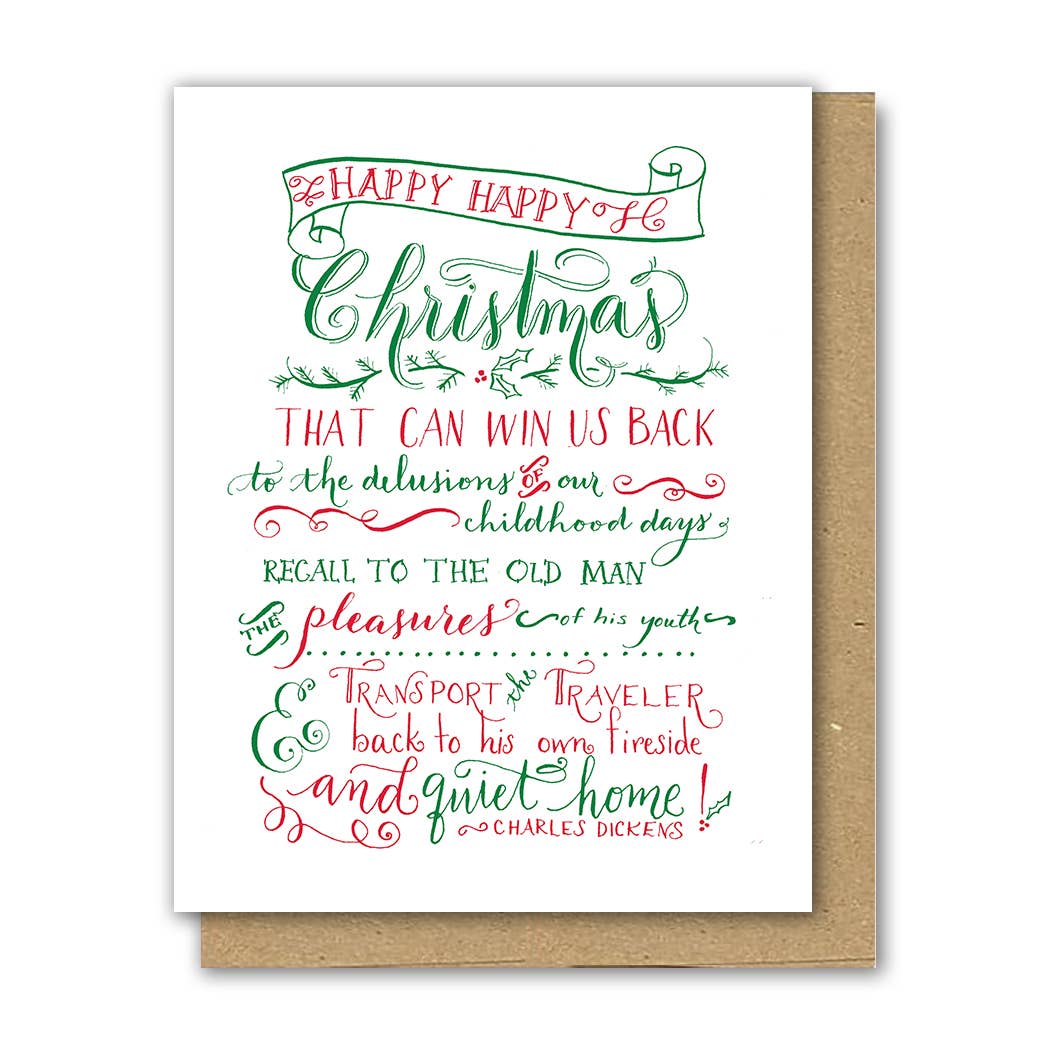 HAPPY HAPPY
Christmas
THAT CAN WIN US BACK
to the delusions OF our
childhood days
RECALL TO THE OLD MAN
THE pleasures of his youth
& TRANSPORT the TRAVELER
back to his own fireside
and quiet home!
CHARLES DICKENS